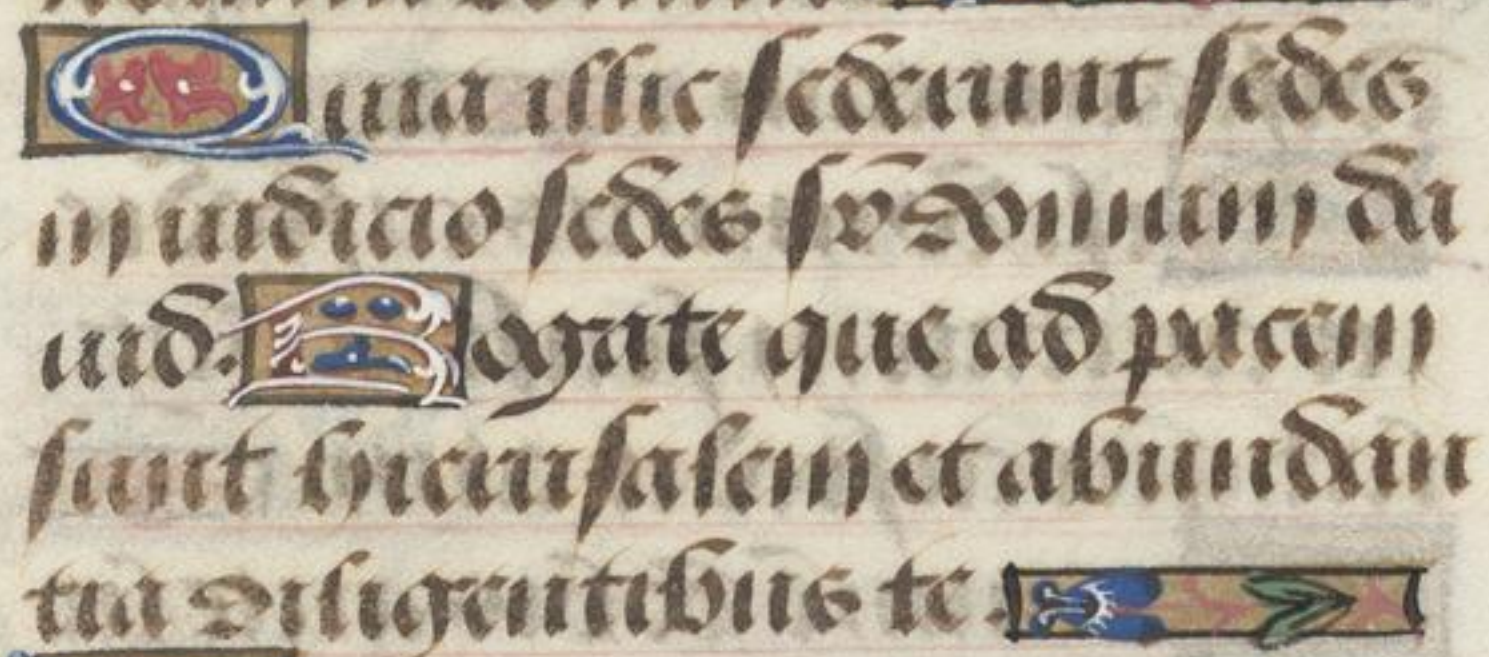 Quia illic sederunt sedes
in iudicio sedes sr̄ domum da
uid. Rogate que ad pacem
sunt hierusalem et abundan
tia diligentibus te.